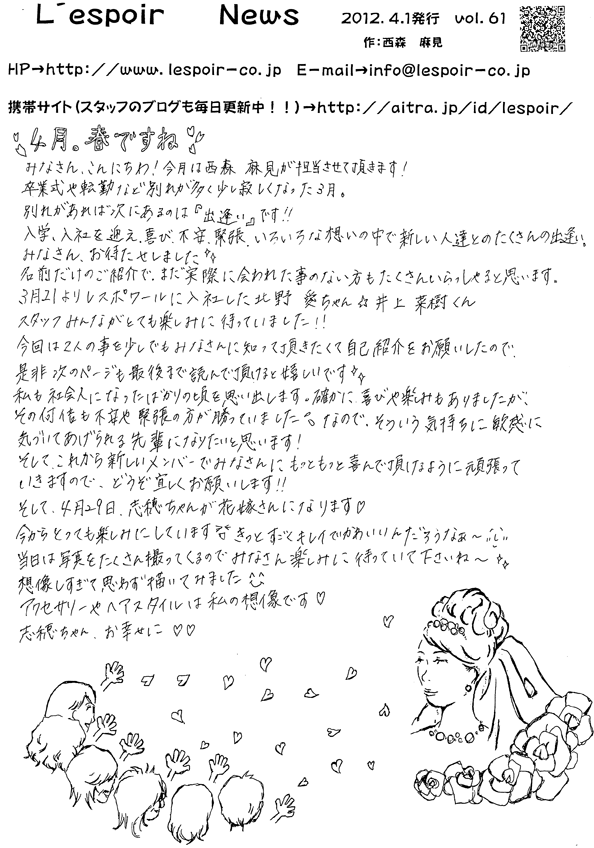 L'espoir News 2012.4.1発行 vol.61
作:西森 麻見
HP→http://www.lespoir-co.jp E-mail→info@lespoir-co.jp
携帯サイト(スタッフのブログも毎日更新中!!)→http://aitra.jp/id/lespoir/
4月。春ですね
みなさん、こんにちわ!今月は西森 麻見が担当させて頂きます!
卒業式や転勤など別れが多く少し寂しくなった3月。
別れがあれば次にあるのは『出逢い』です!!
入学、入社を迎え、喜び、不安、緊張、いろいろな想いの中で新しい人達とのたくさんの出逢い。
みなさん、お待たせしました
名前だけのご紹介で、まだ実際に会われた事のない方もたくさんいらっしゃると思います。
3月21よりレスポワールに入社した北野 愛ちゃん☆井上 菜樹くん
スタッフみんながとても楽しみに待っていました!!
今回は2人の事を少しでもみなさんに知って頂きたくて自己紹介をお願いしたので、
是非次のページも最後まで読んで頂けると嬉しいです
私も社会人になったばかりの頃を思い出します。確かに、喜びや楽しみもありましたが、
その何倍も不安や緊張の方が勝っていました。なので、そういう気持ちに敏感に
気づいてあげられる先輩になりたいと思います!
そして、これから新しいメンバーでみなさんに、もっともっと喜んで頂けるように頑張って
いきますので、どうぞ宜しくお願いします!!
そして、4月29日、志穂ちゃんが花嫁さんになります♡
今からとっても楽しみにしています きっとすごくキレイでかわいいんだろうなぁ〜
当日は写真をたくさん撮ってくるのでみなさん楽しみに待っていて下さいね〜
想像しすぎて思わず描いてみました
アクセサリーやヘアスタイルは私の想像です♡
志穂ちゃん、お幸せに♡♡